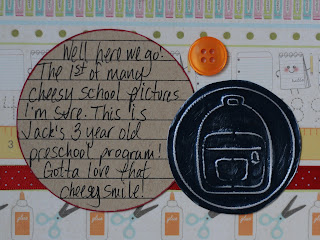 Well here we go!
The 1st of many
cheesy school pictures
I'm sure. This is
Jack's 3 year old
preschool program!
Gotta love that
cheesy smile!